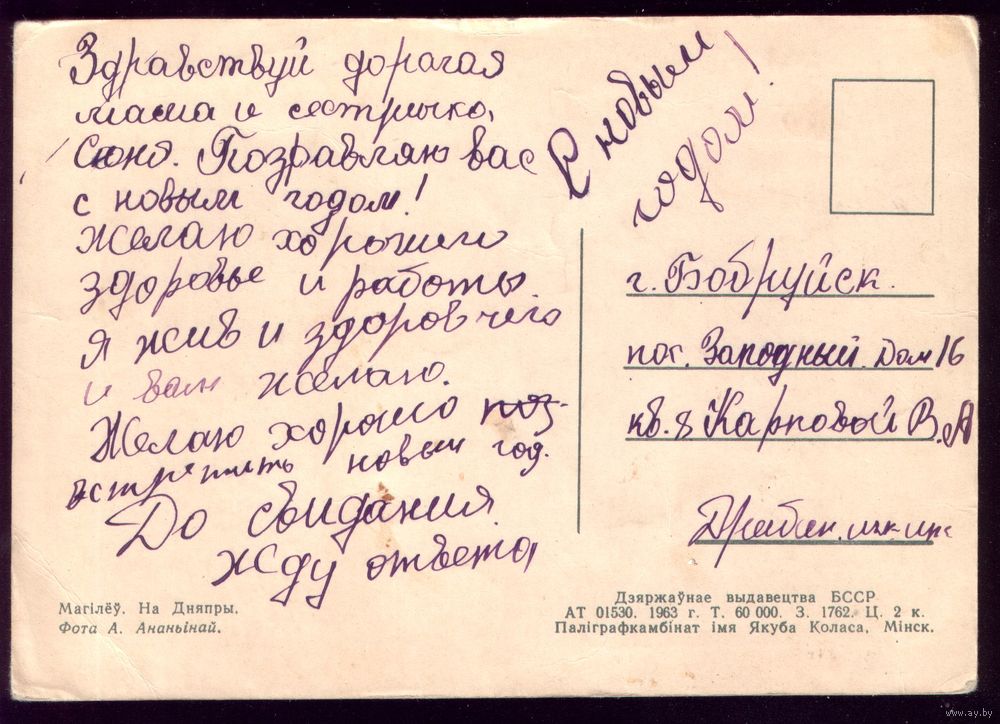 Здравствуй дорогая
мама и сестрычко,
Сюно. Поздравляю вас
с новым годом!
Желаю хорошего
здоровье и работы.
я жив и здоров чего
и вам желаю.
Желаю хорошо
встретить новый год.
До свидания.
жду ответа
С новым
годом!
г. Бобруйск.
пос. Западный. Дом 16
кв. 8 Карповой В. А
Магілёў. На Дняпры.
Фота А. Ананьінай.
Дзяржаўнае выдавецтва БССР
АТ 01530. 1963 г. Т. 60 000. З. 1762. Ц. 2 к.
Паліграфкамбінат імя Якуба Коласа, Мінск.
www.ay.by